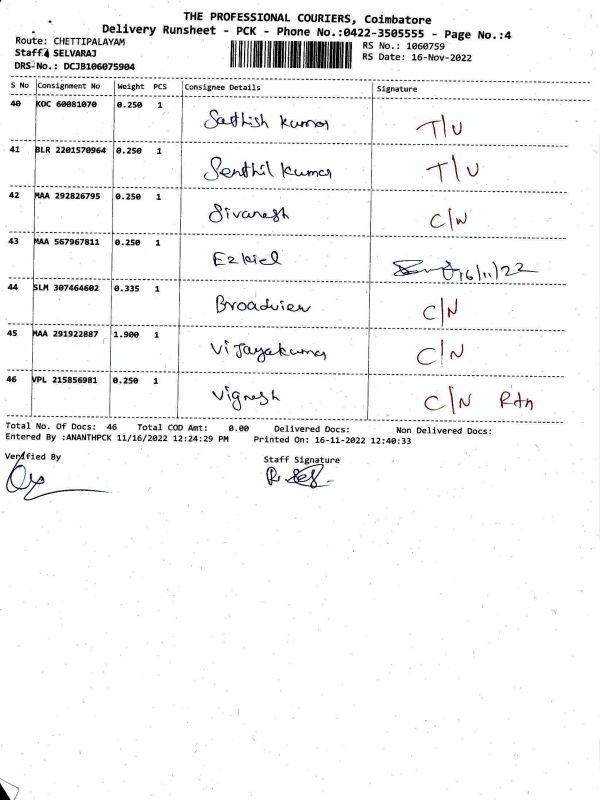 THE PROFESSIONAL COURIERS, Coimbatore
Delivery Runsheet - PCK - Phone No.:0422-3505555 - Page No.:4
Route: CHETTIPALAYAM
RS No.: 1060759
Staff: SELVARAJ
RS Date: 16-Nov-2022
DRS-No.: DCJB106075904
S No Consignment No Weight PCS Consignee Details Signature
40 KOC 60081070 0.250 1 Sathish Kumar T/U
41 BLR 2201570964 0.250 1 Senthil Kumar T/U
42 MAA 292826795 0.250 1 Sivanesh C/N
43 MAA 567967811 0.250 1 Ezkiel 16/11/22
44 SLM 307464602 0.335 1 Broadview C/N
45 MAA 291922887 1.900 1 Vijayakumar C/N
46 VPL 215856981 0.250 1 Vignesh C/N Rtn
Total No. Of Docs: 46 Total COD Amt: 0.00 Delivered Docs: Non Delivered Docs:
Entered By :ANANTHPCK 11/16/2022 12:24:29 PM Printed On: 16-11-2022 12:40:33
Verified By Staff Signature